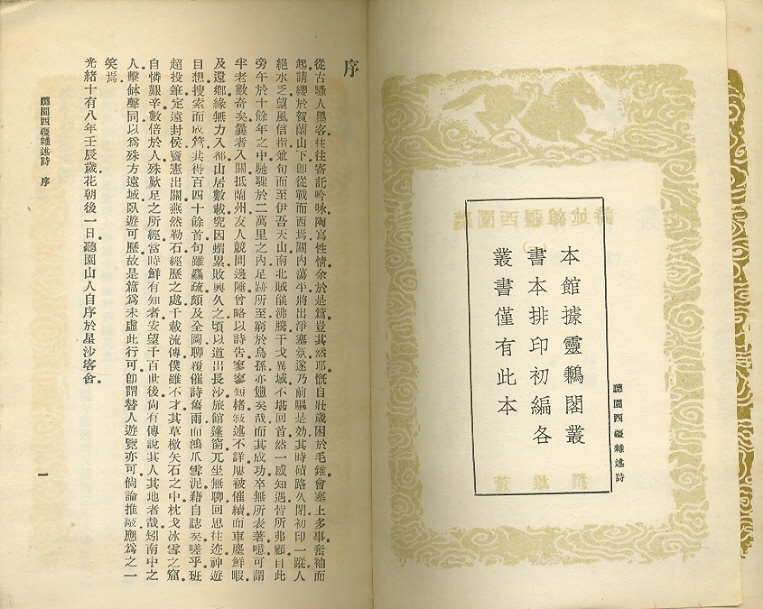 聽園西疆雜述詩
本館據靈鶼閣叢
書本排印初編各
叢書僅有此本
序
從古騷人墨客往往寄託吟咏陶寫性情余於是篇豈其然耶慨自壯歲困於毛錐會塞上多事奮袖而
起請纓於賀蘭山下卽從戰而西焉關內蕩平將出淨塞氛遂乃前驅是効其時磧路久閉初印一蹤人
絕水乏望風信指兼旬而至伊吾天山南北賊燄沸騰干戈異域不堪回首然一感知遇皆所弗顧自此
旁午於十餘年之中馳驅於二萬里之內足跡所至窮於烏孫亦憊矣哉而其成功卒無所表著噫可謂
半老數奇矣曩者入關抵蘭州友人競問邊陲曾略以詩告寥寥短楮敘述不詳屢被催續而車塵鮮暇
及還鄉緣無力入都山居數載究因蝟累敗興久之頃以道出長沙旅館篷窗兀坐無聊回思往迹神遊
目想搜索而成篇共得百四十餘首句雖麤疏頗及全岡聊覆催詩舊雨而鴻爪雪泥藉自誌矣嗟乎班
超投筆定遠封侯竇憲出關燕然勒石經歷之處千載流傳僕雖不才其草檄矢石之中枕戈冰雪之窟
自憐艱辛數倍於人殊歎足之所經當時鮮有知者安望千百世後尙有傳說其人其地者哉矧南中之
人擊鉢聲同以爲殊方遠域臥遊可歷故是篇爲未虛此行可卽謂替人遊覽亦可倘論推敲應爲之一
笑焉
光緒十有八年壬辰歲花朝後一日聽園山人自序於星沙客會
聽園西疆雜述詩 序
一